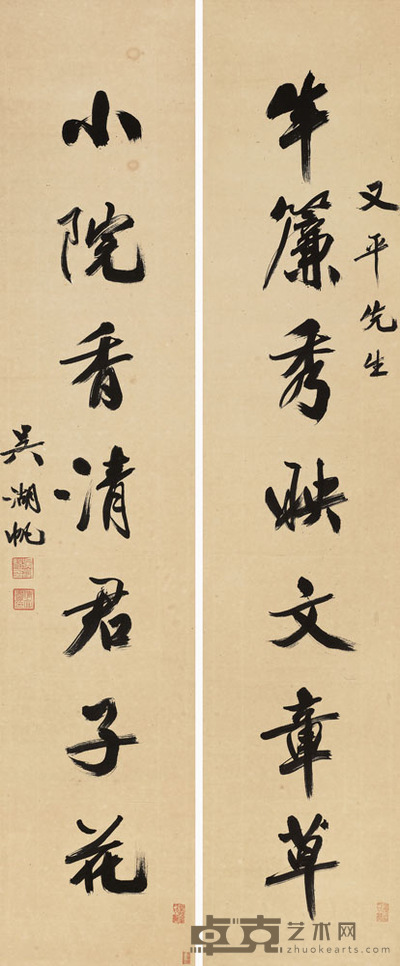 又平先生
半簾秀映文章草
小院香清君子花
吴湖帆
卓克艺术网
www.zhuokearts.com